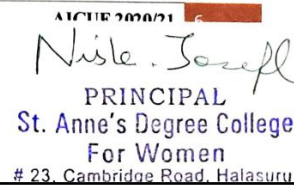 AICUF 2020/21 6
PRINCIPAL
St. Anne's Degree College
For Women
# 23, Cambridge Road, Halasuru